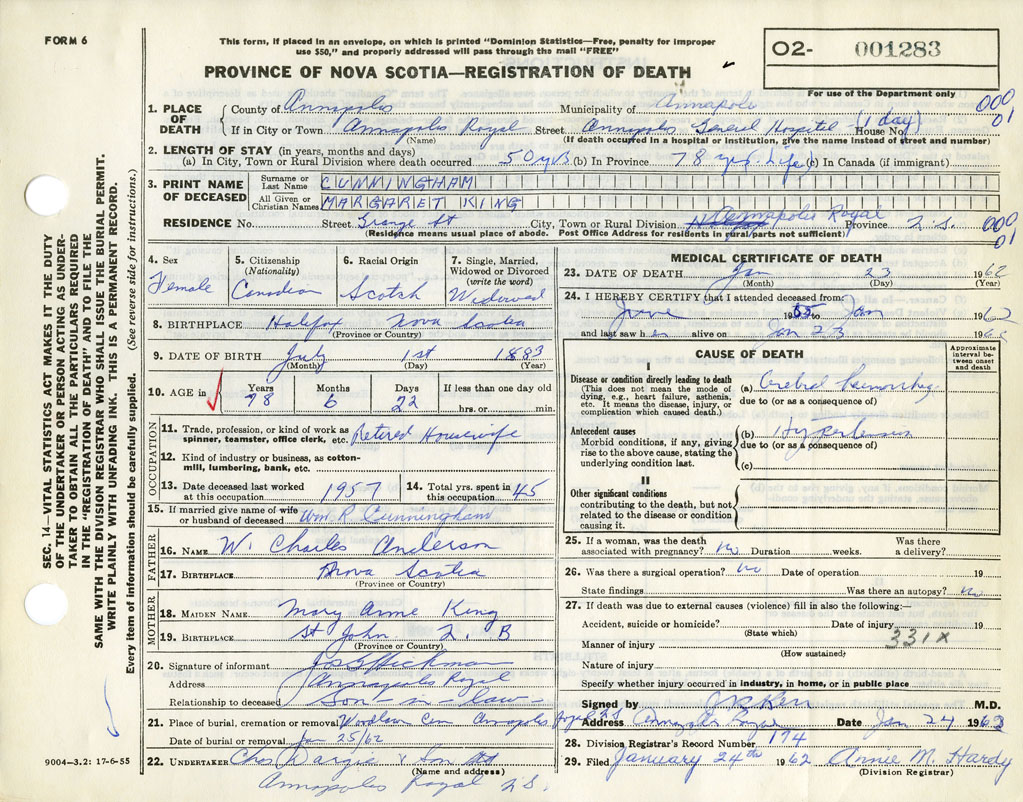 FORM 6
This form, if placed in an envelope, on which is printed "Dominion Statistics—Free, penalty for improper
use $50," and properly addressed will pass through the mail "FREE"
PROVINCE OF NOVA SCOTIA—REGISTRATION OF DEATH
O2- 001283
For use of the Department only
SEC. 14—VITAL STATISTICS ACT MAKES IT THE DUTY
OF THE UNDERTAKER OR PERSON ACTING AS UNDER-
TAKER TO OBTAIN ALL THE PARTICULARS REQUIRED
IN THE "REGISTRATION OF DEATH" AND TO FILE THE
SAME WITH THE DIVISION REGISTRAR WHO SHALL ISSUE THE BURIAL PERMIT.
WRITE PLAINLY WITH UNFADING INK. THIS IS A PERMANENT RECORD.
Every item of information should be carefully supplied. (See reverse side for instructions.)
9004—3.2: 17-6-55
1. PLACE OF DEATH
County of Annapolis Municipality of Annapolis 000
If in City or Town Annapolis Royal Street Annapolis General Hospital (1 day) House No. 01
(Name) (If death occurred in a hospital or institution, give the name instead of street and number)
2. LENGTH OF STAY (in years, months and days)
(a) In City, Town or Rural Division where death occurred 50 yrs (b) In Province 78 yrs. Life (c) In Canada (if immigrant)
3. PRINT NAME OF DECEASED
Surname or Last Name CUNNINGHAM
All Given or Christian Names MARGARET KING
RESIDENCE No. Street Grange St City, Town or Rural Division Annapolis Royal Province N.S. 000
(Residence means usual place of abode. Post Office Address for residents in rural parts not sufficient) 01
4. Sex
Female
5. Citizenship
(Nationality)
Canadian
6. Racial Origin
Scotch
7. Single, Married,
Widowed or Divorced
(write the word)
Widowed
8. BIRTHPLACE Halifax Nova Scotia
(Province or Country)
9. DATE OF BIRTH July 1st 1883
(Month) (Day) (Year)
10. AGE in Years 78 Months 6 Days 22 If less than one day old
hrs. or min.
OCCUPATION
11. Trade, profession, or kind of work as
spinner, teamster, office clerk, etc. Retired Housewife
12. Kind of industry or business, as cotton-
mill, lumbering, bank, etc.
13. Date deceased last worked
at this occupation 1957
14. Total yrs. spent in
this occupation 45
15. If married give name of wife
or husband of deceased Wm R. Cunningham
FATHER
16. NAME W. Charles Anderson
17. BIRTHPLACE Nova Scotia
(Province or Country)
MOTHER
18. MAIDEN NAME Mary Anne King
19. BIRTHPLACE St John N. B
(Province or Country)
20. Signature of informant Hickman
Address Annapolis Royal
Relationship to deceased Son-in-law
21. Place of burial, cremation or removal Woodlawn Cem Annapolis Royal N.S
Date of burial or removal Jan 25/62
22. UNDERTAKER Chas Dargie & Son
(Name and address)
Annapolis Royal N.S.
MEDICAL CERTIFICATE OF DEATH
23. DATE OF DEATH Jan 23 1962
(Month) (Day) (Year)
24. I HEREBY CERTIFY that I attended deceased from
June 55 to Jan 1962
and last saw her alive on Jan 23 196
CAUSE OF DEATH
Approximate
interval be-
tween onset
and death
I
Disease or condition directly leading to death
(This does not mean the mode of
dying, e.g., heart failure, asthenia,
etc. It means the disease, injury, or
complication which caused death.)
(a) Cerebral Hemorrhage
due to (or as a consequence of)
Antecedent causes
Morbid conditions, if any, giving
rise to the above cause, stating the
underlying condition last.
(b) Hypertension
due to (or as a consequence of)
(c)
II
Other significant conditions
contributing to the death, but not
related to the disease or condition
causing it.
25. If a woman, was the death
associated with pregnancy? No Duration weeks. Was there
a delivery?
26. Was there a surgical operation? No Date of operation 19
State findings Was there an autopsy? No
27. If death was due to external causes (violence) fill in also the following:—
Accident, suicide or homicide? Date of injury 19
(State which)
331X
Manner of injury
(How sustained)
Nature of injury
Specify whether injury occurred in industry, in home, or in public place
Signed by Kerr M.D.
Address Annapolis Royal Date Jan 24 1962
28. Division Registrar's Record Number 174
29. Filed January 24th 1962 Annie M. Hardy
(Division Registrar)